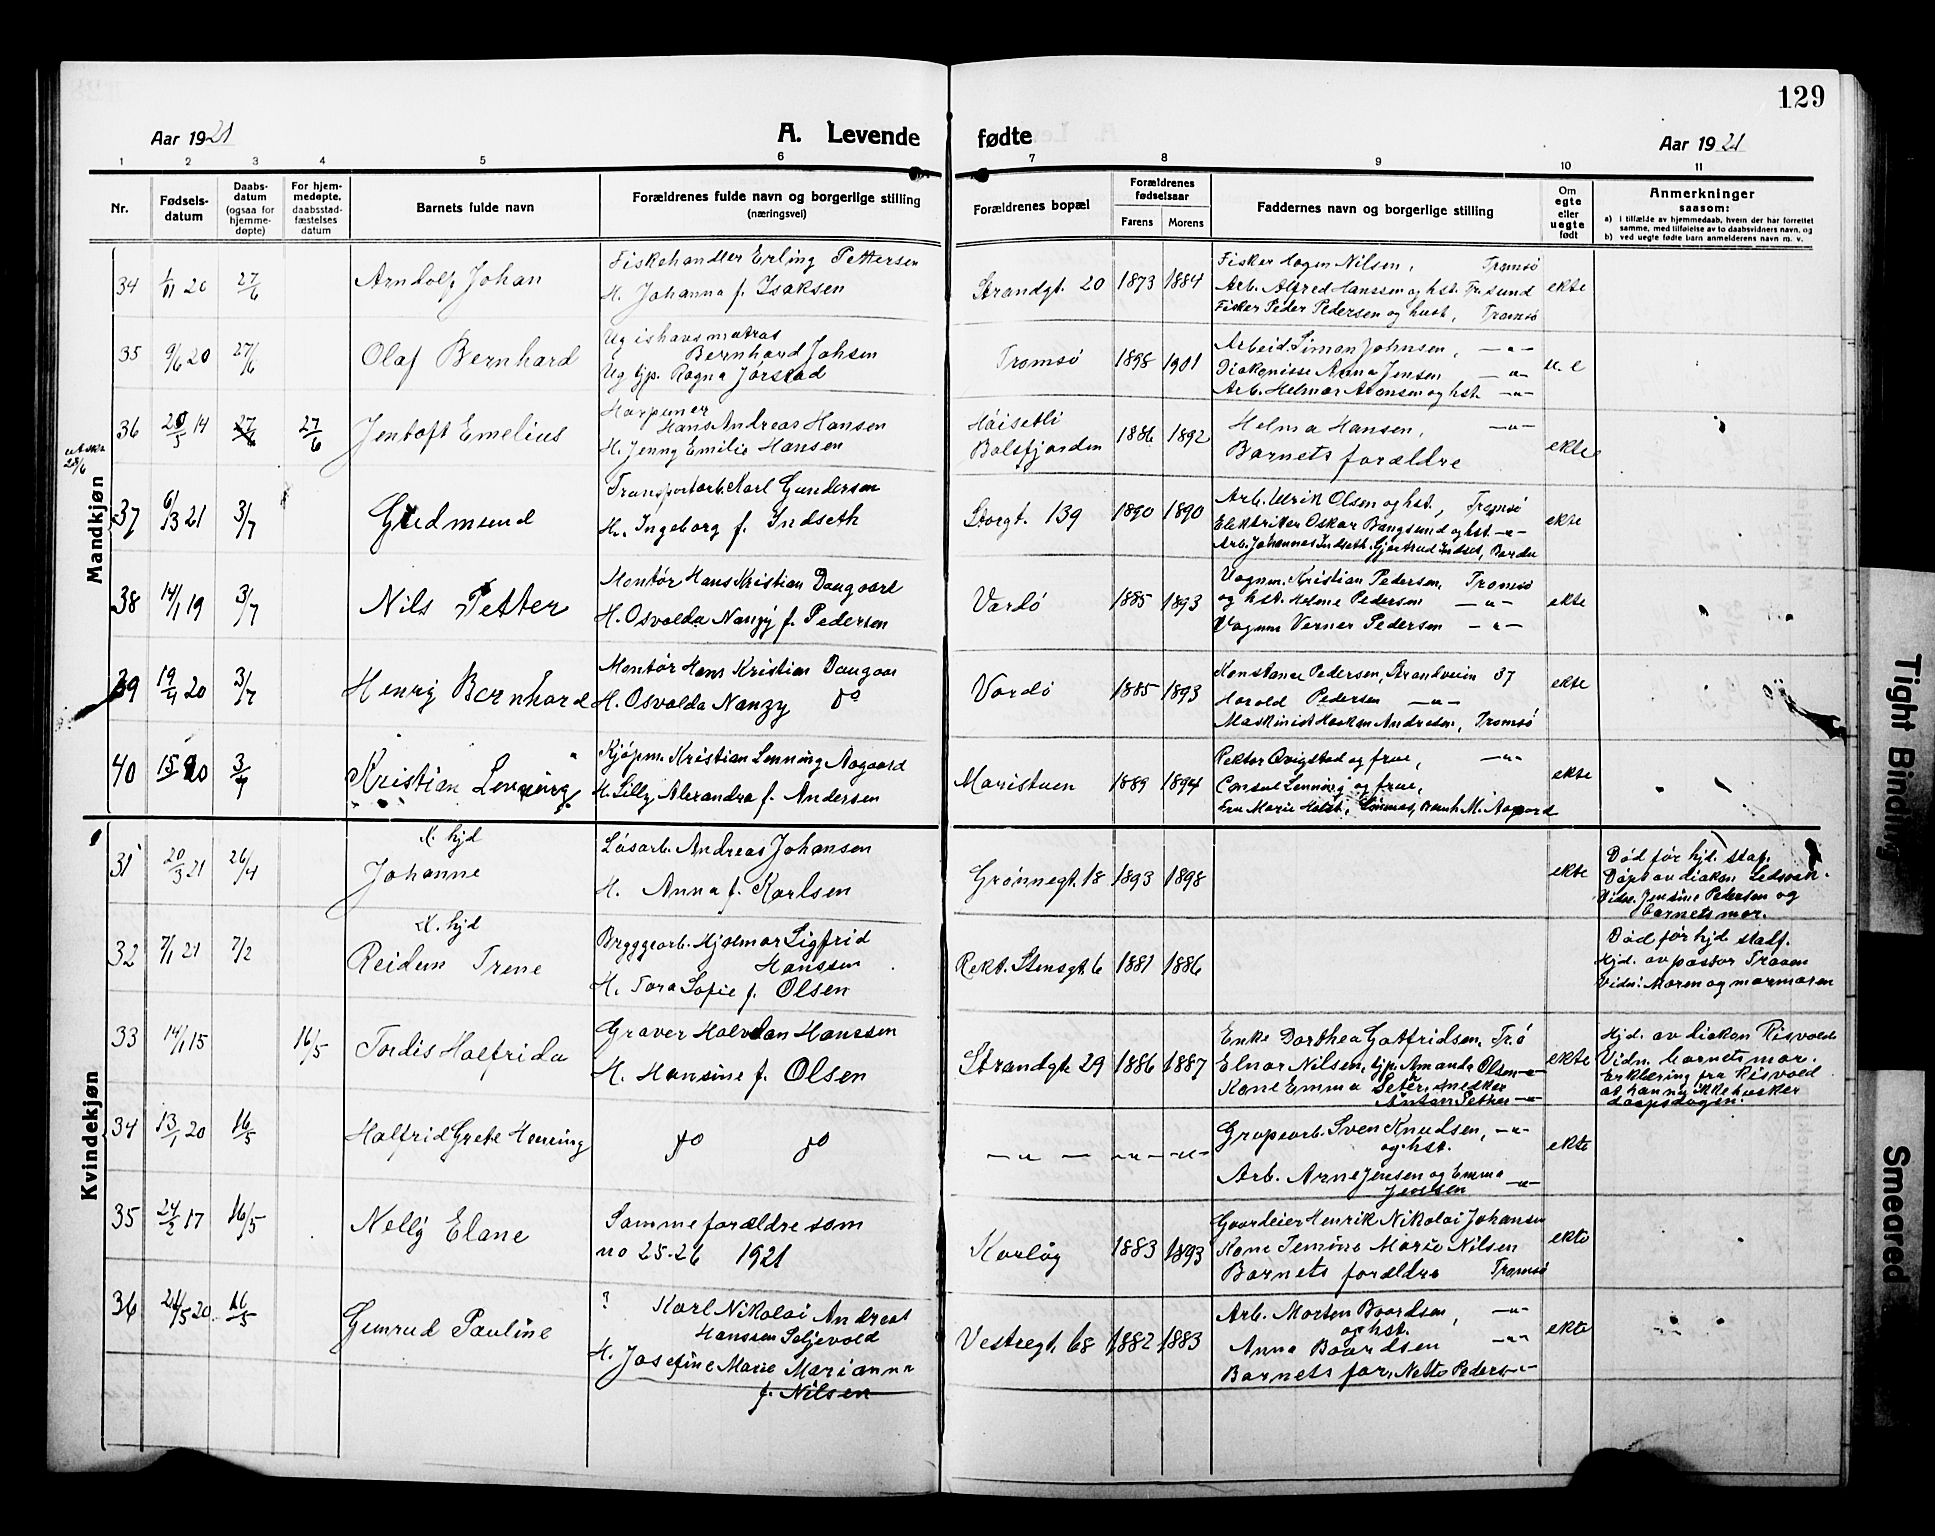 129
Aar 1921
A. Levende
fødte
Aar 1921
1 2 3 4 5 6 7 8 9 10 11
Nr.
Fødsels-
datum
Daabs-
datum
(ogsaa for
hjemme-
døpte)
For hjem-
medøpte,
daabsstad-
fæstelses
datum
Barnets fulde navn
Forældrenes fulde navn og borgerlige stilling
(næringsvei)
Forældrenes bopæl
Forældrenes
fødselsaar
Farens
Morens
Faddernes navn og borgerlige stilling
Om
egte
eller
uegte
født
Anmerkninger
saasom:
a) i tilfælde av hjemmedaab, hvem der har forrettet
samme, med tilføielse av to daabsvidners navn, og
b) ved uegte fødte barn anmelderens navn m. v.
Mandkjøn
34 1/11 20 27/6
Arndolf Johan
Fiskehandler Erling Pettersen
H. Johanna f. Isaksen
Strandgt. 20 1873 1884
Fisker Hagen Nilsen, Tromsø
Arb. Alfred Hanssen og hst. Tr.sund
Fisker Peder Pedersen og hust, Tromsø
ekte
35 9/6 20 27/6
Olaf Bernhard
Ug ishavsmatros
Bernhard Johsen
Ug tjp. Ragna Jørstad
Tromsø 1898 1901
Arbeid. Siman Johnsen, —"—
Diakonisse Anna Jensen —"—
Arb. Helmar Aronsen og hst. —"—
u. e
36 20/5 14 27/6 27/6
Jentoft Emelius
Harpuner
Hans Andreas Hansen
H. Jenny Emilie Hansen
Høisetli
Balsfjorden 1886 1892
Helma Hansen, —"—
Barnets forældre
ekte
28/6
37 6/13 21 3/7
Gudmund
Transportarb. Karl Gundersen
H. Ingeborg f. Indseth
Storgt. 139 1890 1890
Arb. Ulrik Olsen og hst., Tromsø
Elektriker Oskar Bangsund og hst. —"—
Arb. Johannes Indseth. Gjertrud Indset, Bardu
ekte
38 14/1 19 3/7
Nils Petter
Montør Hans Kristian Daugaard
H. Osvalda Nanzy f. Pedersen
Vardø 1885 1893
Vognm. Kristian Pedersen, Tromsø
og hst. Helene Pedersen —"—
Vognm Verner Pedersen —"—
ekte
39 19/4 20 3/7
Henry Bernhard
Montør Hans Kristian Daugaa
H. Osvalda Nanzy do
Vardø 1885 1893
Konstance Pedersen, Strandveien 37
Harald Pedersen —"—
Maskinist Haakon Andresen, Tromsø
ekte
40 15/9 20 3/7
Kristian Lenning
Kjøpm. Kristian Lenning Aagaard
H. Lilly Alexandra f. Andersen
Maristuen 1889 1894
Rektor Qvigstad og frue, —"—
Consul Lenning og frue,
Fru Marie Holst, Bernh M. Aagaard
ekte
Kvindekjøn
31 20/3 21 26/4
X. hjd
Johanne
Løsarb. Andreas Johansen
H. Anna f. Karlsen
Grønnegt. 18 1893 1898
ekte
Død før hjd. staf.
Døpt av diakon
Vidn. Jensine Pedersen og
barnets mor.
32 7/1 21 7/2
X. hjd
Reidun Irene
Bryggearb. Hjalmar Sigfrid
Hanssen
H. Tora Sofie f. Olsen
Rekt. Stensgt. 6 1881 1886
Død før hjd stadf.
Hjd. av pastor Traaen
Vidn: Moren og mormoren
33 14/1 15 16/5
Tordis Halfrida
Graver Halvdan Hanssen
H. Hansine f. Olsen
Strandgt. 29 1886 1887
Enke Dorthea Gotfridsen, Trø
Elnar Nilsen, tjp. Amanda Olsen —"—
Kone Emma Seter, snedker
Anton Sether —"—
ekte
Hjd. av diakon Risvold
Vidn. barnets mor.
Erklæring fra Risvold
at han ny ikke husker
daapsdagen.
34 13/1 20 16/5
Halfrid Grete Henning
do do
—"— —"— —"—
Grapearb. Sven Knudsen, —"—
og hst.
Arb. Arne Jensen og Emma
Jensen —"—
ekte
35 24/2 17 16/5
Nelly Elane
Samme forældre som
no 25-26 1921
Karløy 1883 1893
Gaardeier Henrik Nikolai Johansen
Kone Jemine Marie Nilsen
Barnets forældre Tromsø
ekte
36 24/5 20. 16/5
Gunrud Pauline
? Karl Nikolai Andreas
Hanssen Seljevold
H. Josefine Marie Marianna
f. Nilsen
Vestregt. 68 1882 1883
Arb. Morten Baardsen, —"—
og hst.
Anna Baardsen —"—
Barnets for, Netto Peders —"—
ekte
Tight Binding
Smeared